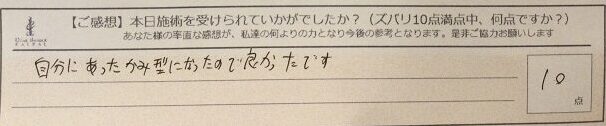 【ご感想】本日施術を受けられていかがでしたか？（ズバリ10点満点中、何点ですか？）
あなた様の率直な感想が、私達の何よりの力となり今後の参考となります。是非ご協力お願いします
自分にあったかみ型になったので良かったです
10
点